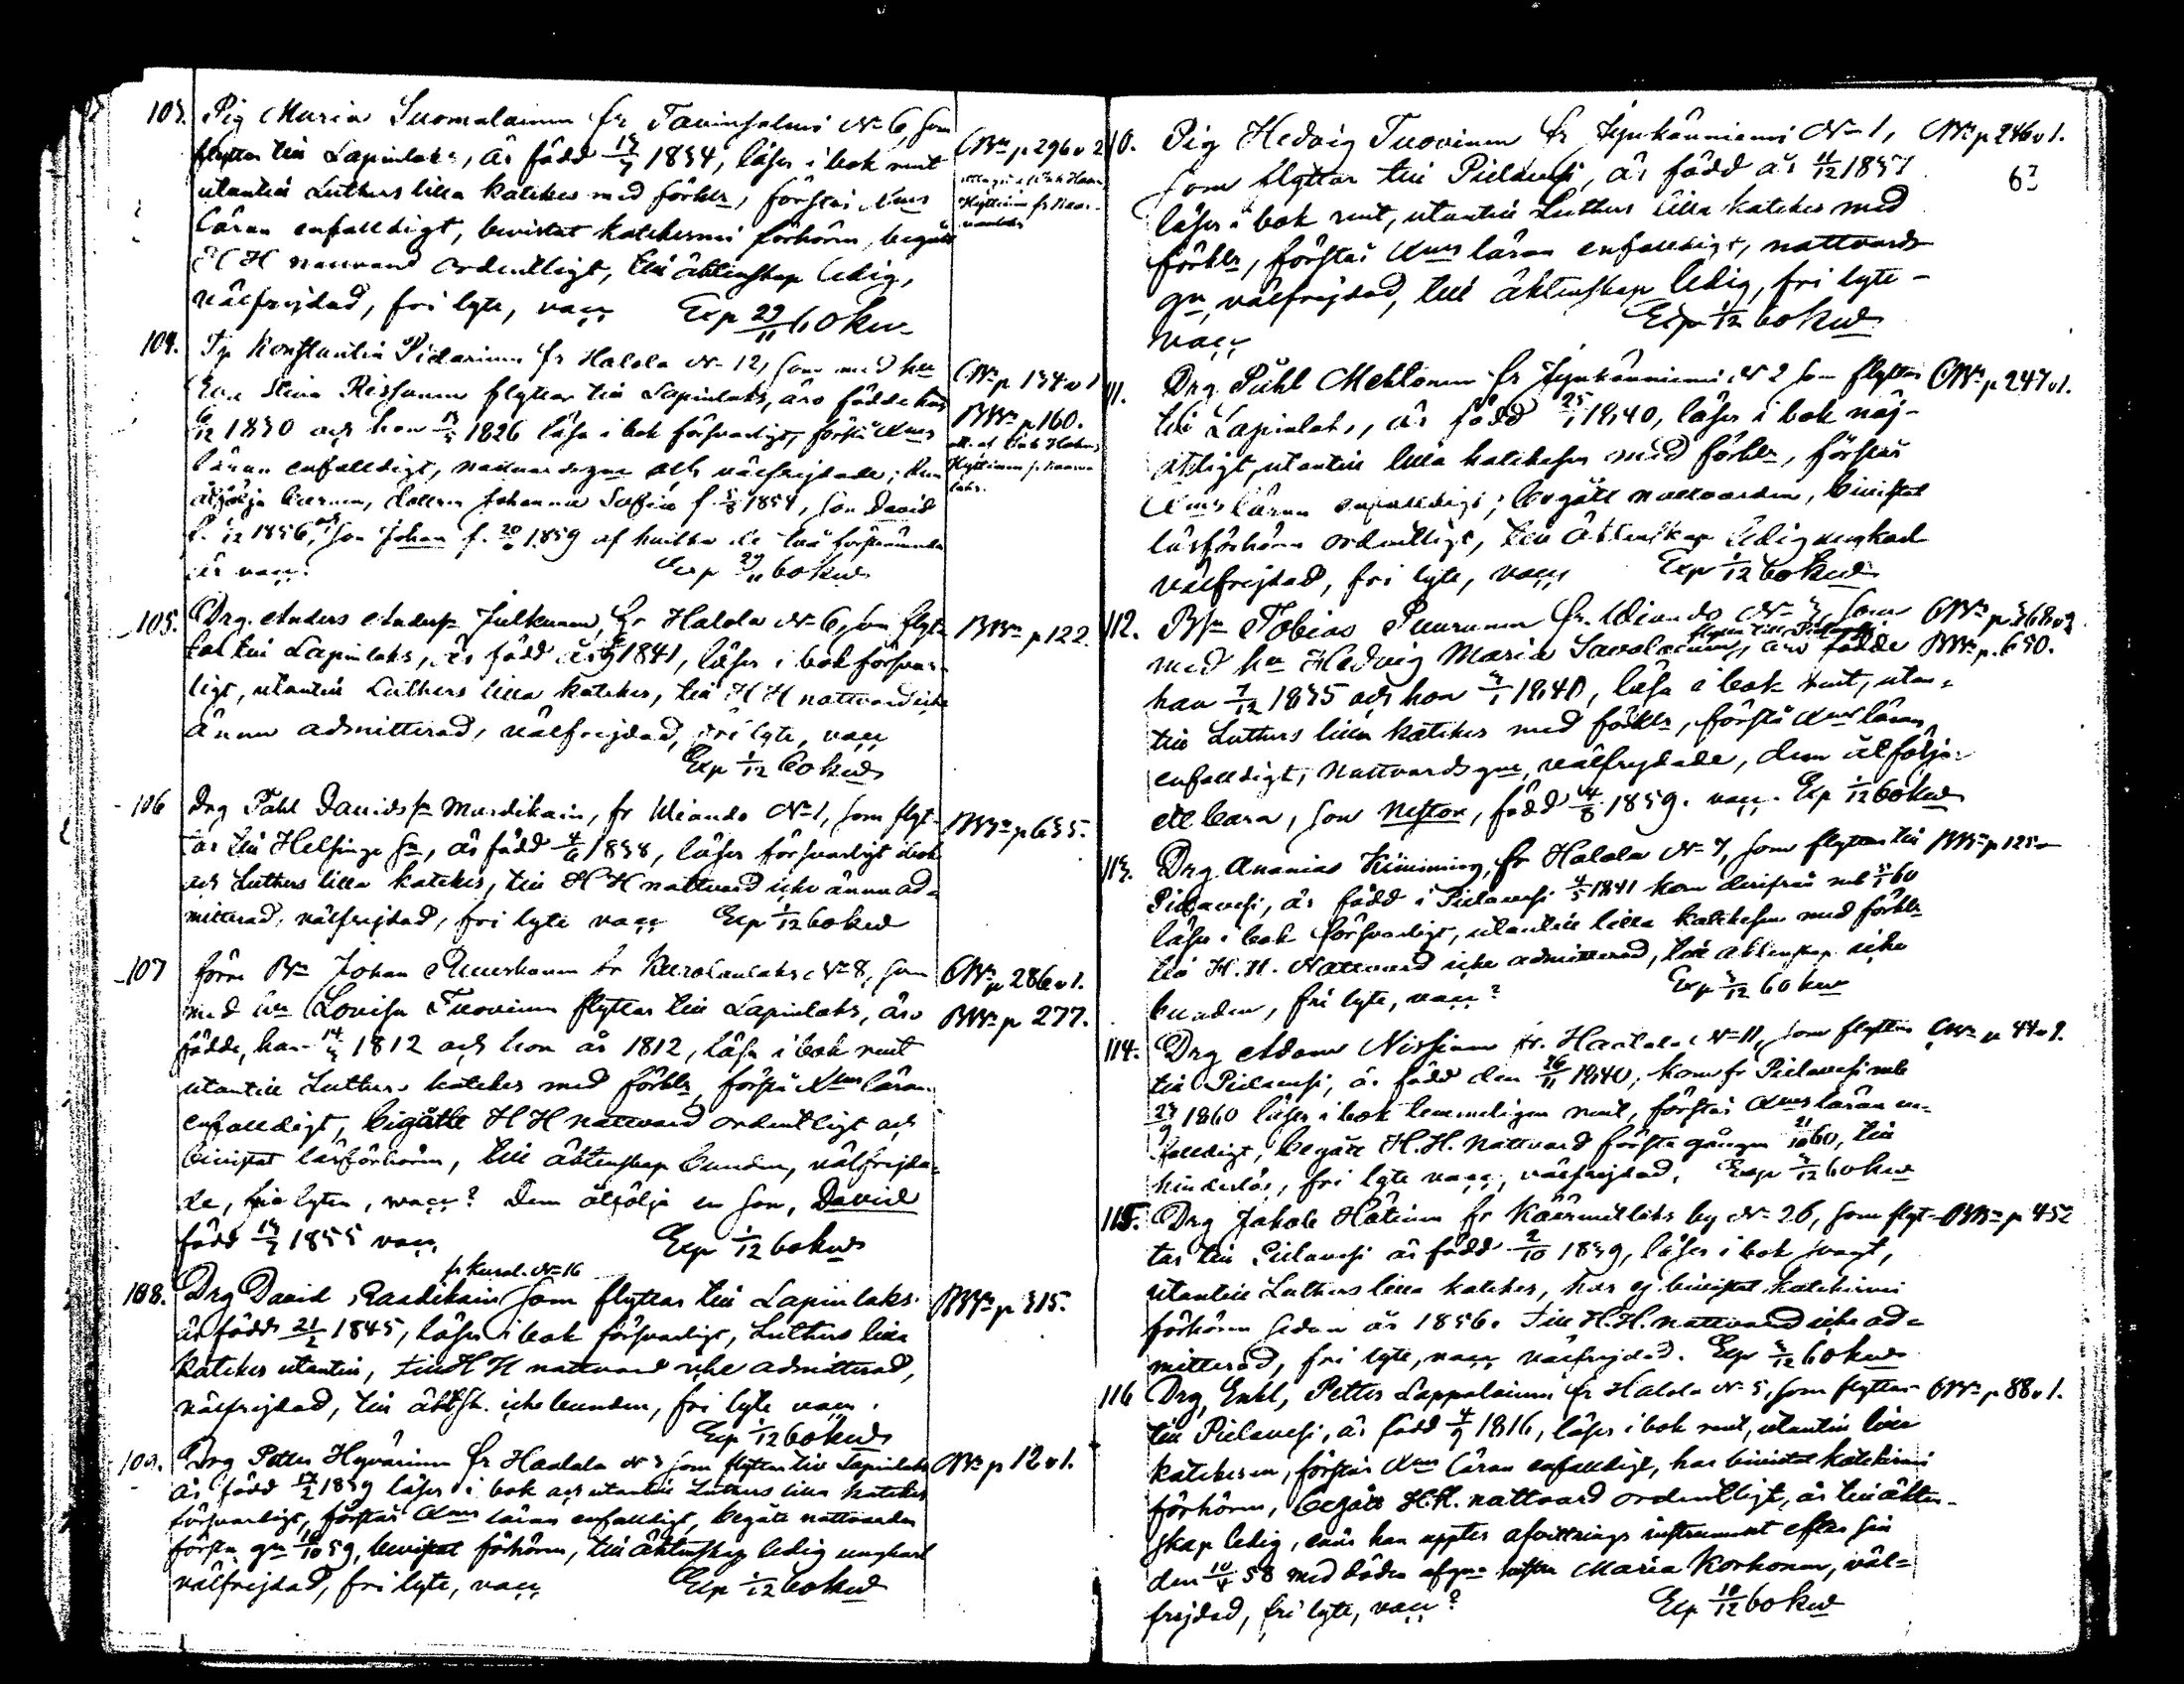 103. Pig Maria Suomalainen fr Tavinsalmi N 6, som
flyttar till Lapinlaks, är född 1834, läser i bok rent
utantill Luthers lilla kateches med förkl, förstår Xnds
läran enfaldigt, bevistat katechismi förhören, begått
H H nattvard ordentligt, till äktenskap ledig,
välfrejdad, fri lyte, vacc Exp 29/11 60 kw
p 296 v 2
104. Konstantin Pidarinen fr Halola N 12, som med hu
Stina Rissanen flyttar till Lapinlaks, äro födde han
1830 och hon 1826 läsa i bok försvarligt, förstå Xnds
läran enfaldigt, nattvardsgne och välfrejdade; dem
åtfölja barnen, dottren Johanna Sofia f. 1854, son David
f. 1/12 1856, son Johan f. 1859 af hvilka de två förstnämnda
är vacc. Exp 29/11 60 kw
p 134 v 1
p 160.
105. Drg. Anders Andersson Julkunen, fr Halola N 6, som flyt-
tat till Lapinlaks, är född år 1841, läser i bok försvar-
ligt, utantill Luthers lilla kateches, till H H nattvard icke
ännu admitterad, välfrejdad, fri lyte, vacc
Exp 1/12 60 kw
p 122.
106 Drg Påhl Davidsson Mursdikain, fr Wiando N 1, som flyt-
tar till Helsinge sn, är född 4/6 1838, läser försvarligt i bok
och Luthers lilla kateches, till H H nattvard icke ännu ad-
mitterad, välfrejdad, fri lyte vacc Exp 1/12 60 kw
p 635.
107 förre Bn Johan fr Kurolanlaks N 8, som
med hu Lovisa Tuovinen flyttar till Lapinlaks, äro
födde, han 1812 och hon år 1812, läsa i bok rent
utantill Luthers kateches med förkl, förstå Xnds läran
enfaldigt, begåtte H H nattvard ordentligt och
bevistat läsförhören, till äktenskap bunden, välfrejda-
de, fria lyten, vacc? Dem åtfölja en son, David
född 1855 vacc. Exp 1/12 60 kw
p 286 v 1.
p 277.
fr Kurol. N 16
108. Drg David Raadikain som flyttar till Lapinlaks
är född 21/2 1845, läser i bok försvarligt, Luthers lilla
kateches utantill, till H H nattvard icke admitterad,
välfrejdad, till äktsk. icke bunden, fri lyte vacc.
Exp 1/12 60 kw
p 315.
109. Drg Petter Hyvärinen fr Haalala N 3 som flyttar till Lapinlaks
är född 1839 läser i bok och utantill Luthers lilla kateches
försvarligt, förstår Xnds läran enfaldigt, begått nattvarden
första gn 59, bevistat förhören, till äktenskap ledig ungkarl
välfrejdad, fri lyte, vacc Exp 1/12 60 kw
p 12 v 1.
63
110. Pig Hedvig Tuovinen fr Jynkänniemi N 1,
som flyttar till Pielavesi, är född år
läser i bok rent, utantill Luthers lilla kateches med
förkl, förstår Xnds läran enfaldigt, nattvards-
gn, välfrejdad, till äktenskap ledig, fri lyte
vacc Exp 1/12 60 kw
p 246 v 1.
111. Drg Påhl Mehtonen fr Jynkänniemi N 2 som flyttar
till Lapinlaks, är född 25/1 1840, läser i bok nöj-
aktligt, utantill lilla katechesen med förkl, förstår
Xnds läran enfaldigt; begått nattvarden, bevistat
läsförhören ordentligt, till äktenskap ledig ungkarl
välfrejdad, fri lyte, vacc Exp 1/12 60 kw
p 247 v 1.
112. Bsn Tobias fr. Wiando N 3, som
med hu Hedvig Maria Savolainen, flyttar till Pielavesi, äro födde
han 7/12 1835 och hon 1840, läsa i bok rent, utan-
till Luthers lilla kateches med förkl, förstå Xnds läran
enfaldigt, nattvardsgne, välfrejdade, dem åtföljer
ett barn, son Nestor, född 1859. vacc. Exp 1/12 60 kw
p. 630.
113. Drg Ananias Kinnining, fr Halola N 7, som flyttar till
Pielavesi, är född i Pielavesi 4/5 1841 kom derifrån 60
läser i bok försvarligt, utantill lilla katechesen med förkl
till H. H. Nattvard icke admitterad, till äktenskap icke
bunden, fri lyte, vacc? Exp 60 kw
p 125
114. Drg Adam Nissinen fr. Haatala N 11, som flyttar
till Pielavesi, är född den 26/11 1840, kom fr Pielavesi
1860 läser i bok temmeligen rent, förstår Xnds läran en-
faldigt, begått H. H. Nattvard första gången 21/10 60, till
hinderlös, fri lyte vacc, välfrejdad. Exp 60 kw
115. Drg Jakob Hätinen fr Käärmetlaks by N 26, som flyt-
tar till Pielavesi är född 2/10 1839, läser i bok svagt,
utantill Luthers lilla kateches, har ej bevistat katechismi
förhören sedan år 1856. till H. H. nattvard icke ad-
mitterad, fri lyte, vacc välfrejdad. Exp 60 kw
p 452
116 Drg, Enkl, Petter Lappalainen fr Halola N 5, som flyttar
till Pielavesi, är född 4/9 1816, läser i bok rent, utantill lilla
katechesen, förstår Xnds läran enfaldigt, har bevistat katechismi
förhören, begått H.H. nattvard ordentligt, är till äkten-
skap ledig, enär han uppter afvittrings instrument efter sin
den 10/4 58 med döden afgna hustru Maria Korhonen, väl-
frejdad, fri lyte, vacc? Exp 10/12 60 kw
p 88 v 1.